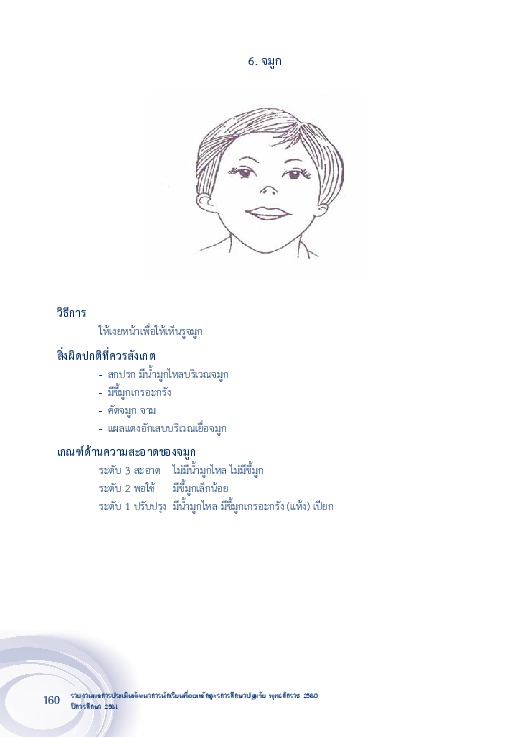 6. จมูก
วิธีการ
ให้เงยหน้าเพื่อให้เห็นรูจมูก
สิ่งผิดปกติที่ควรสังเกต
- สกปรก มีน้ำมูกไหลบริเวณจมูก
- มีขี้มูกเกรอะกรัง
- คัดจมูก จาม
- แผลแดงอักเสบบริเวณเยื่อจมูก
เกณฑ์ด้านความสะอาดของจมูก
ระดับ 3 สะอาด ไม่มีน้ำมูกไหล ไม่มีขี้มูก
ระดับ 2 พอใช้ มีขี้มูกเล็กน้อย
ระดับ 1 ปรับปรุง มีน้ำมูกไหล มีขี้มูกเกรอะกรัง (แห้ง) เปียก
160 รายงานผลการประเมินพัฒนาการนักเรียนที่จบหลักสูตรการศึกษาปฐมวัย พุทธศักราช 2560
ปีการศึกษา 2561